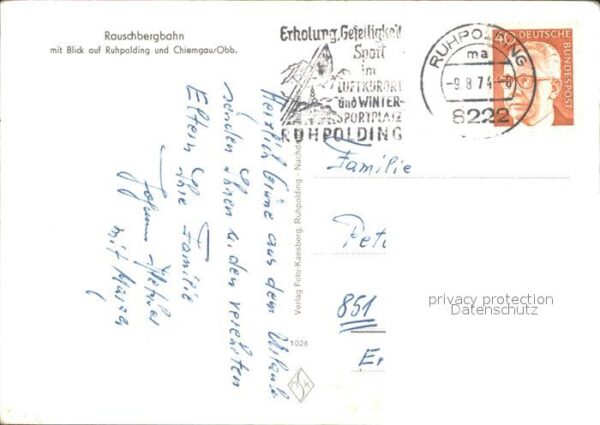 Rauschbergbahn
mit Blick auf Ruhpolding und Chiemgau/Obb.
Herzlich Grüße aus dem Urlaub
senden Ihnen u. den verehrten
Eltern
Ihre Familie
mit
Verlag Foto-Kaesberg, Ruhpolding - Nachdr
1026
Erholung, Geselligkeit
Sport
im
LUFTKURORT
und WINTER-
SPORTPLATZ
RUHPOLDING
RUHPOLDING
ma
-9.8.74-8
8222
40
DEUTSCHE BUNDESPOST
Familie
Pet
851
privacy protection
Datenschutz
E